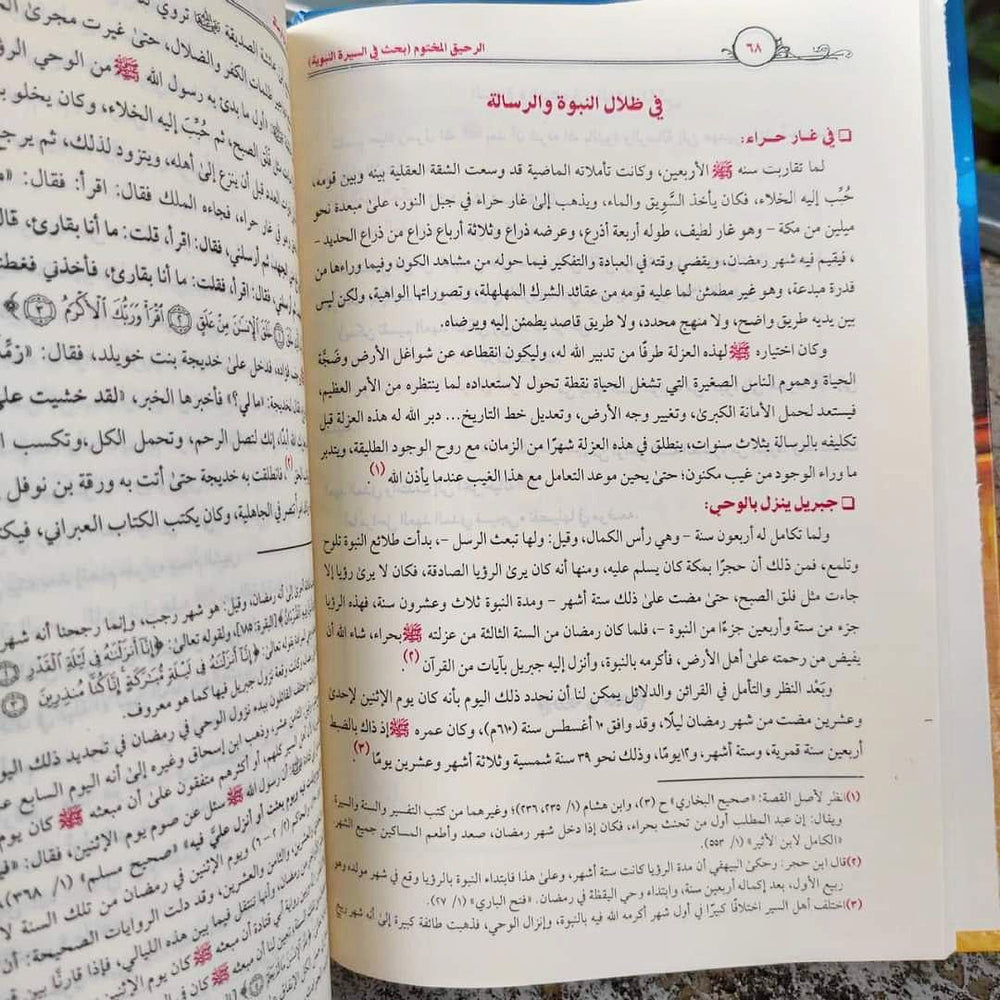 ٦٨
الرحيق المختوم (بحث في السيرة النبوية)
في ظلال النبوة والرسالة
❑ في غار حراء:
لما تقاربت سنه ﷺ الأربعين، وكانت تأملاته الماضية قد وسعت الشقة العقلية بينه وبين قومه،
حُبِّب إليه الخلاء، فكان يأخذ السَّوِيق والماء، ويذهب إلىٰ غار حراء في جبل النور، علىٰ مبعدة نحو
ميلين من مكة – وهو غار لطيف، طوله أربعة أذرع، وعرضه ذراع وثلاثة أرباع ذراع من ذراع الحديد –
، فيقيم فيه شهر رمضان، ويقضي وقته في العبادة والتفكير فيما حوله من مشاهد الكون وفيما وراءها من
قدرة مبدعة، وهو غير مطمئن لما عليه قومه من عقائد الشرك المهلهلة، وتصوراتها الواهية، ولكن ليس
بين يديه طريق واضح، ولا منهج محدد، ولا طريق قاصد يطمئن إليه ويرضاه.
وكان اختياره ﷺ لهذه العزلة طرفًا من تدبير الله له، وليكون انقطاعه عن شواغل الأرض وضَجَّة
الحياة وهموم الناس الصغيرة التي تشغل الحياة نقطة تحول لاستعداده لما ينتظره من الأمر العظيم،
فيستعد لحمل الأمانة الكبرىٰ، وتغيير وجه الأرض، وتعديل خط التاريخ... دبر الله له هذه العزلة قبل
تكليفه بالرسالة بثلاث سنوات، ينطلق في هذه العزلة شهرًا من الزمان، مع روح الوجود الطليقة، ويتدبر
ما وراء الوجود من غيب مكنون؛ حتىٰ يحين موعد التعامل مع هذا الغيب عندما يأذن الله (١).
❑ جبريل ينزل بالوحي:
ولما تكامل له أربعون سنة – وهي رأس الكمال، وقيل: ولها تبعث الرسل –، بدأت طلائع النبوة تلوح
وتلمع، فمن ذلك أن حجرًا بمكة كان يسلم عليه، ومنها أنه كان يرىٰ الرؤيا الصادقة، فكان لا يرىٰ رؤيا إلا
جاءت مثل فلق الصبح، حتىٰ مضت علىٰ ذلك ستة أشهر – ومدة النبوة ثلاث وعشرون سنة، فهذه الرؤيا
جزء من ستة وأربعين جزءًا من النبوة –، فلما كان رمضان من السنة الثالثة من عزلته ﷺ بحراء، شاء الله أن
يفيض من رحمته علىٰ أهل الأرض، فأكرمه بالنبوة، وأنزل إليه جبريل بآيات من القرآن (٢).
وبَعْد النظر والتأمل في القرائن والدلائل يمكن لنا أن نحدد ذلك اليوم بأنه كان يوم الإثنين لإحدىٰ
وعشرين مضت من شهر رمضان ليلًا، وقد وافق ١٠ أغسطس سنة (٦١٠م)، وكان عمره ﷺ إذ ذاك بالضبط
أربعين سنة قمرية، وستة أشهر، و١٢يومًا، وذلك نحو ٣٩ سنة شمسية وثلاثة أشهر وعشرين يومًا (٣).
(١)انظر لأصل القصة: «صحيح البخاري» ح (٣)، وابن هشام (١/ ٢٣٥، ٢٣٦)؛ وغيرهما من كتب التفسير والسنة والسيرة
ويقال: إن عبد المطلب أول من تحنث بحراء، فكان إذا دخل شهر رمضان، صعد وأطعم المساكين جميع الشهر
«الكامل لابن الأثير» (١/ ٥٥٣).
(٢)قال ابن حجر: وحكىٰ البيهقي أن مدة الرؤيا كانت ستة أشهر، وعلىٰ هذا فابتداء النبوة بالرؤيا وقع في شهر مولده وهو
ربيع الأول، بعد إكماله أربعين سنة، وابتداء وحي اليقظة في رمضان. «فتح الباري» (١/ ٢٧).
(٣)اختلف أهل السير اختلافًا كبيرًا في أول شهر أكرمه الله فيه بالنبوة، وإنزال الوحي، فذهبت طائفة كبيرة إلىٰ أنه شهر ربيع
عائشة الصديقة تروي
ظلمات الكفر والضلال، حتىٰ غيرت مجرىٰ
أول ما بدئ به رسول الله ﷺ من الوحي
فلق الصبح، ثم حُبِّبَ إليه الخلاء، وكان يخلو
قبل أن ينزع إلىٰ أهله، ويتزود لذلك، ثم يرجع
في غار حراء، فجاءه الملك فقال: اقرأ: فقال:
الجهد، ثم أرسلني، فقال: اقرأ، قلت: ما أنا بقارئ، قال
فقال: اقرأ، فقلت: ما أنا بقارئ، فأخذني فغطني
خَلَقَ ٱلْإِنسَٰنَ مِنْ عَلَقٍ ٢ ٱقْرَأْ وَرَبُّكَ ٱلْأَكْرَمُ ٣﴾
فؤاده، فدخل علىٰ خديجة بنت خويلد، فقال: «زمِّ
لخديجة: «ما لي؟» فأخبرها الخبر، «لقد خشيت علىٰ
الله أبدًا، إنك لتصل الرحم، وتحمل الكل، وتكسب
(٢) فانطلقت به خديجة حتىٰ أتت به ورقة بن نوفل
تنصر في الجاهلية، وكان يكتب الكتاب العبراني، فيكتب
أنه رمضان، وقيل: هو شهر رجب، وإنما رجحنا أنه شهر
[البقرة: ١٨٥]، ولقوله تعالىٰ: ﴿إِنَّآ أَنزَلْنَٰهُ فِى لَيْلَةِ ٱلْقَدْرِ ١
﴿إِنَّآ أَنزَلْنَٰهُ فِى لَيْلَةٍ مُّبَٰرَكَةٍ إِنَّا كُنَّا مُنذِرِينَ ٣
نزول جبريل فيها كما هو معروف.
بدء نزول الوحي في رمضان في تحديد ذلك اليوم
وذهب ابن إسحاق وغيره إلىٰ أنه اليوم السابع
أو أكثرهم متفقون علىٰ أن مبعثه ﷺ كان يوم
أن رسول الله ﷺ سئل عن صوم يوم الإثنين، فقال: «
ويوم بعثت أو أنزل عليَّ فيه» «صحيح مسلم» (١/ ٣٦٨)
ويوم الإثنين في رمضان من تلك السنة
والعشرين، وقد دلت الروايات الصحيحة: أن
وأنها تنتقل فيما بين هذه الليالي، فإذا قارنَّا بين
أن مبعثه ﷺ كان يوم